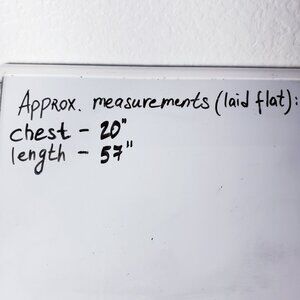 Approx. measurements (laid flat):
chest - 20"
length - 57"